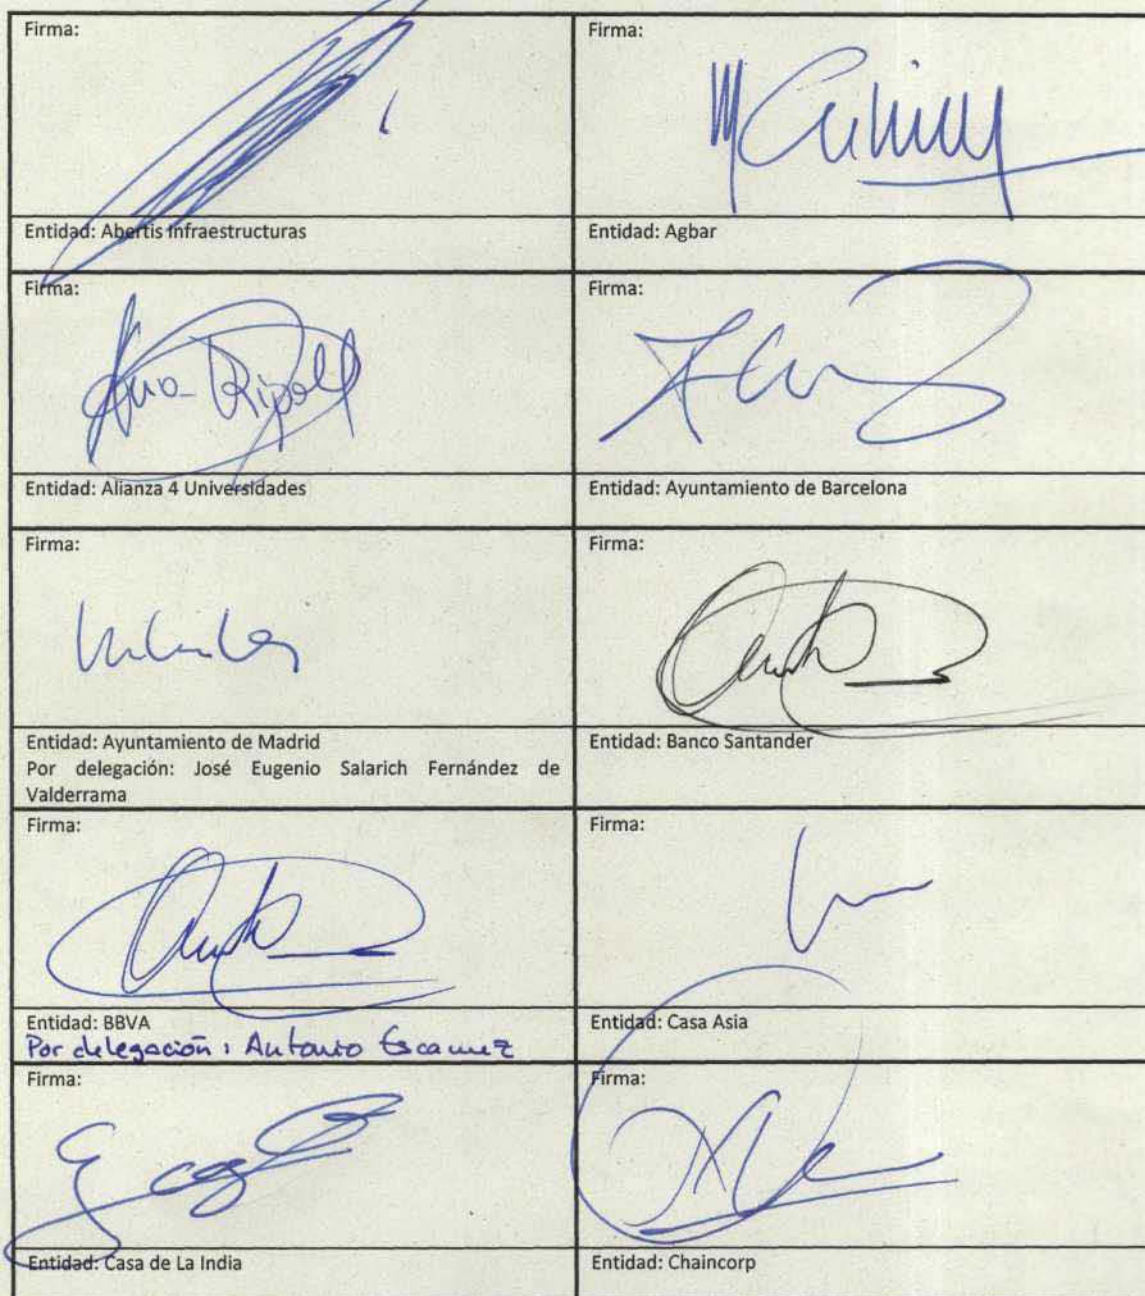 Firma:
Firma:
Entidad: Abertis Infraestructuras
Entidad: Agbar
Firma:
Firma:
Ana Ripoll
Entidad: Alianza 4 Universidades
Entidad: Ayuntamiento de Barcelona
Firma:
Firma:
Entidad: Ayuntamiento de Madrid
Por delegación: José Eugenio Salarich Fernández de
Valderrama
Entidad: Banco Santander
Firma:
Firma:
Entidad: BBVA
Por delegación: Antonio Escamez
Entidad: Casa Asia
Firma:
Firma:
Entidad: Casa de La India
Entidad: Chaincorp